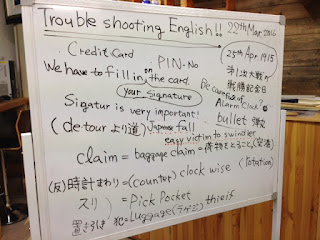 Trouble shooting English!!
22th Mar 2016
Credit Card PIN-No
25th Apr 1915
We have to fill in, on the card.
your signature
Sigatur is very important!
Alarm Clock?
bullet 弾丸
(detour より道) Japanese fall
easy victim to swindler
claim = baggage claim = 荷物をとること (空港)
(反) 時計まわり = (counter) clock wise (rotation)
スリ) = Pick Pocket
置き引き 犯 = Luggage (ラゲッジ) thief